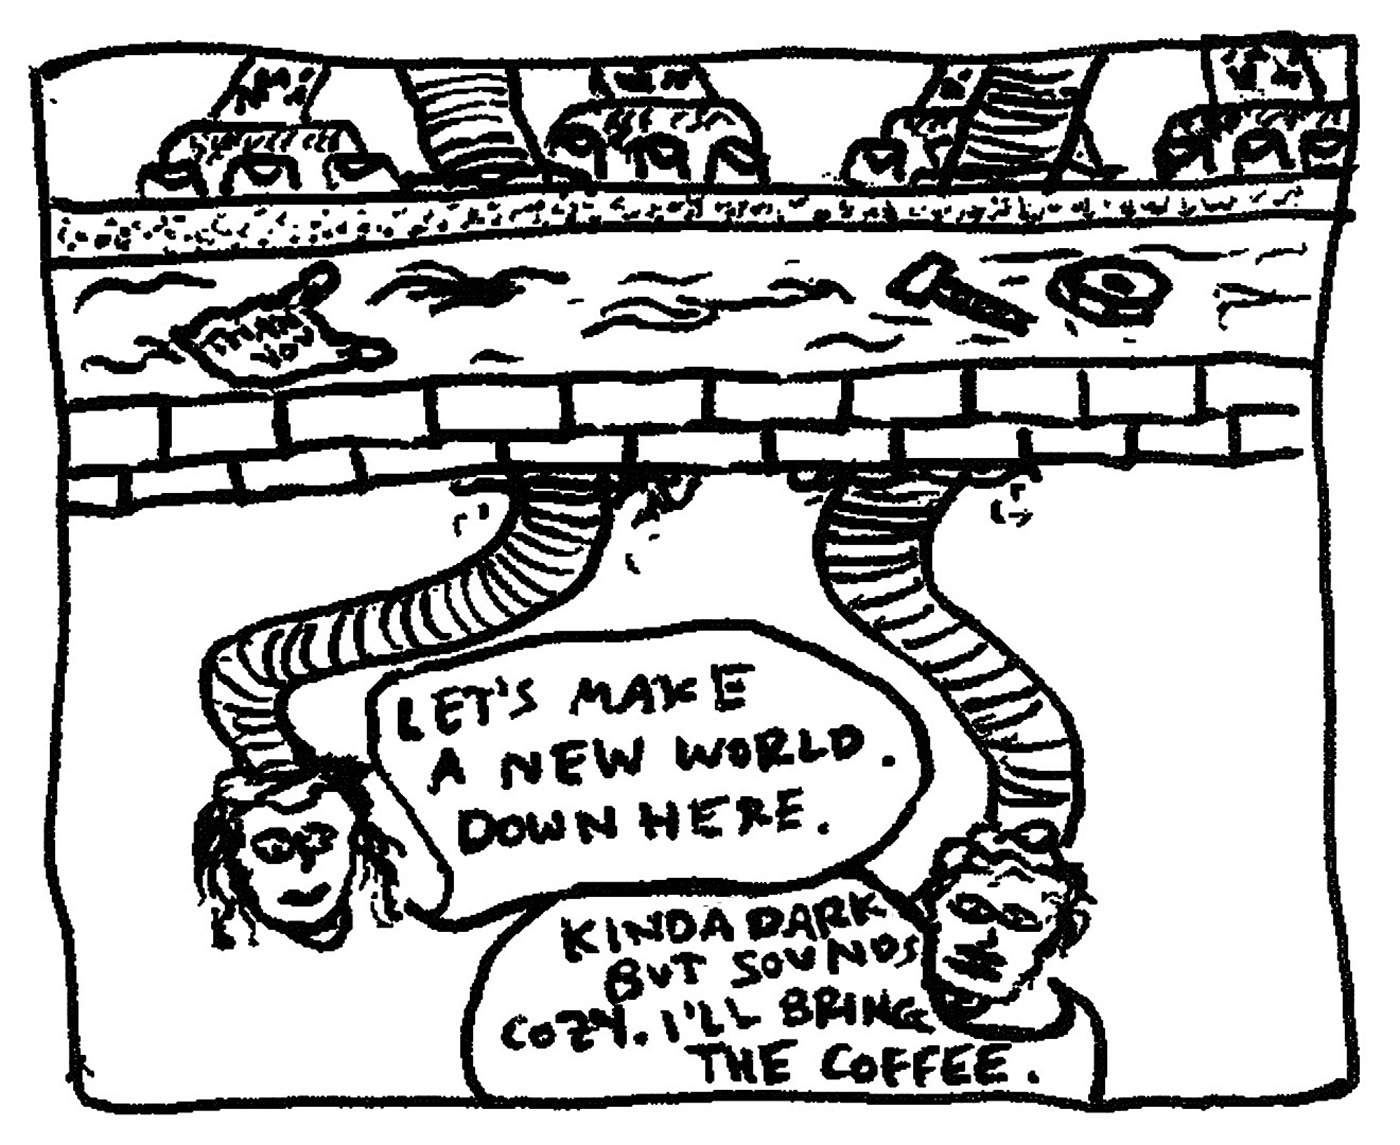 THANK
YOU
LET'S MAKE
A NEW WORLD.
DOWN HERE.
KINDA DARK
BUT SOUNDS
COZY. I'LL BRING
THE COFFEE.